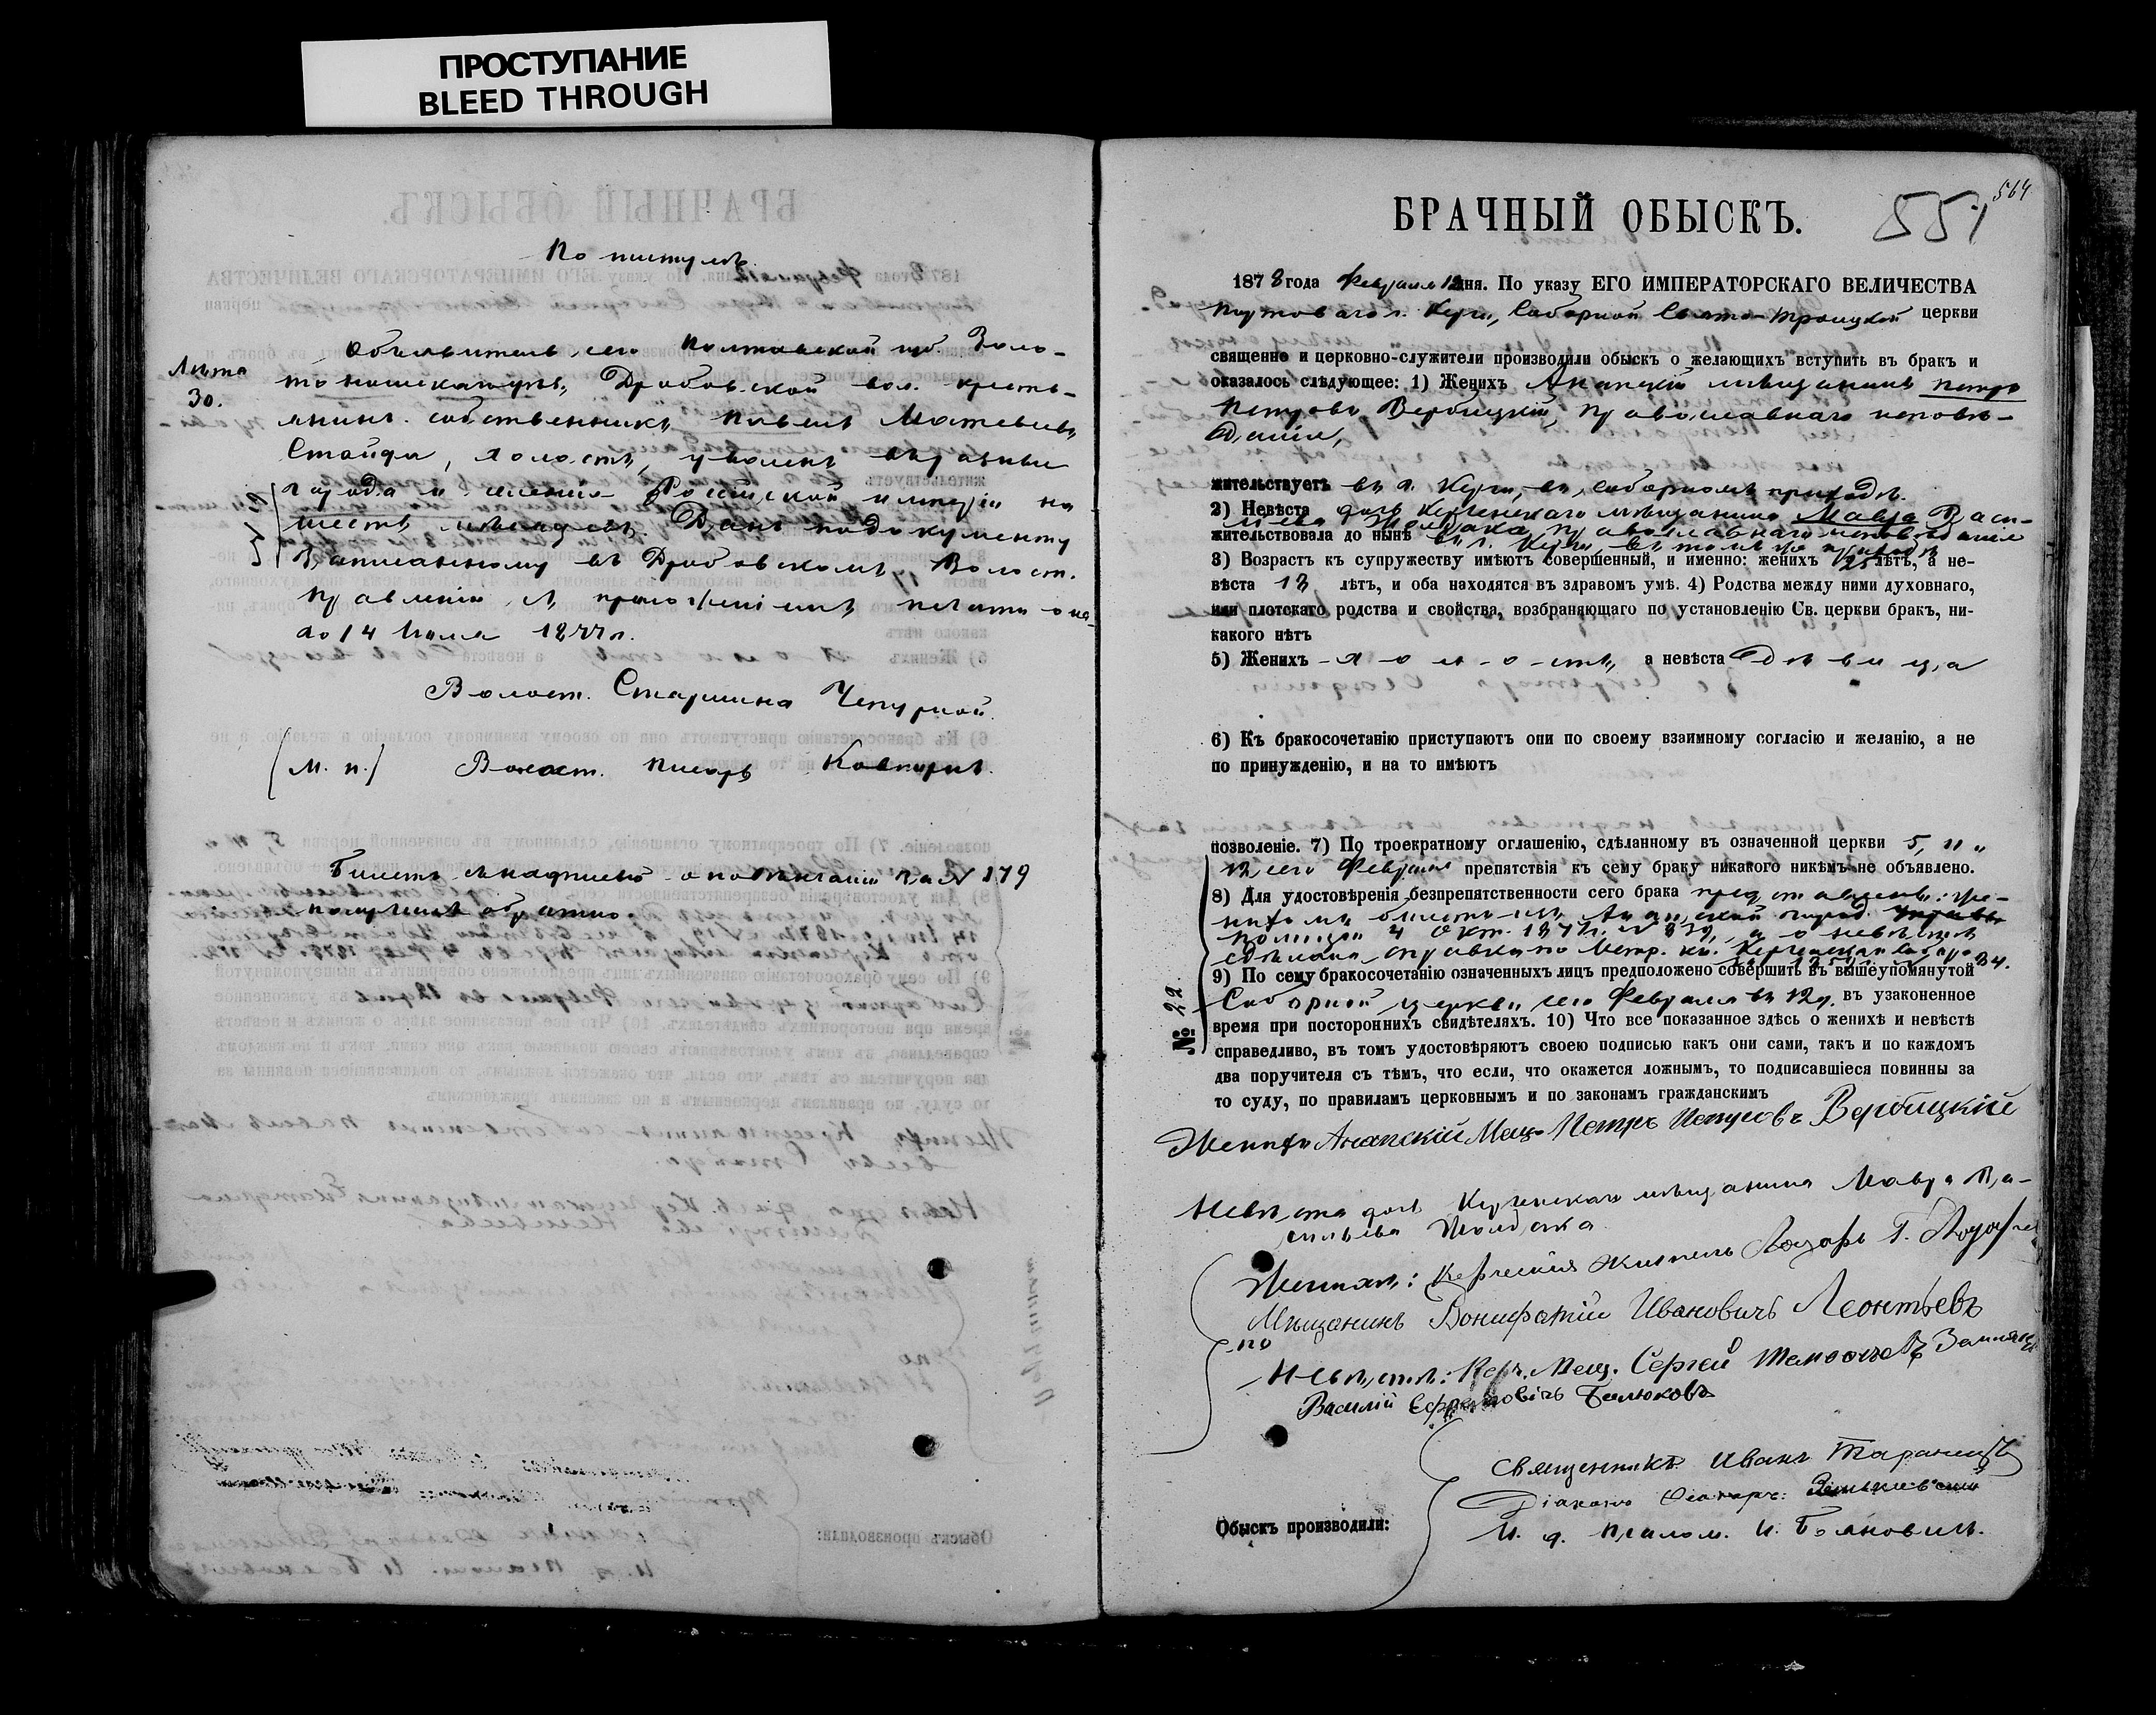 ПРОСТУПАНИЕ
BLEED THROUGH
По титулѣ
Объявитель сего Полтавской губ Золо-
Лѣта
30.
тоношскаго уѣз. Дробовской вол. кресть-
янинъ собственникъ Павелъ Матвѣевъ
Стайда, холостъ, уволенъ въ разные
города и селенія Россійской имперіи на
шесть мѣсяцевъ. Данъ по документу
Записанному въ Дробовскомъ Волост.
Правленіи съ приложеніемъ печати она-
го 14 Іюля 1877 г.
Волост. Старшина Чепурной.
(М. п.) Волост. писарь
Билетъ съ надписью о повѣнчаніи за № 179
получилъ обратно.
БРАЧНЫЙ ОБЫСКЪ.
551
564
1878 года Февраля 12 дня. По указу ЕГО ИМПЕРАТОРСКАГО ВЕЛИЧЕСТВА
Портоваго г. Керчи, Соборной Свято-Троицкой церкви
священно и церковно-служители производили обыскъ о желающихъ вступить въ бракъ и
оказалось слѣдующее: 1) Женихъ Анапскій мѣщанинъ Петръ
Петровъ Вербицкій, православнаго исповѣ-
данія,
жительствуетъ въ г. Керчи, въ соборномъ приходѣ.
2) Невѣста дочь Керченскаго мѣщанина Мавра Васи-
льева православнаго исповѣданія
жительствовала до нынѣ въ г. Керчи, въ томъ же приходѣ
3) Возрастъ къ супружеству имѣютъ совершенный, и именно: женихъ 25 лѣтъ, а не-
вѣста 18 лѣтъ, и оба находятся въ здравомъ умѣ. 4) Родства между ними духовнаго,
или плотскаго родства и свойства, возбраняющаго по установленію Св. церкви бракъ, ни-
какого нѣтъ
5) Женихъ - х - о - л - о - стъ, а невѣста дѣвица
6) Къ бракосочетанію приступаютъ они по своему взаимному согласію и желанію, а не
по принужденію, и на то имѣютъ
позволеніе. 7) По троекратному оглашенію, сдѣланному въ означенной церкви 5, 11 и
12 сего Февраля препятствія къ сему браку никакого никѣмъ не объявлено.
8) Для удостовѣренія безпрепятственности сего брака представлены: же-
нихомъ билетъ изъ Анапской город.
Полиціи 4 Окт. 1877 г. № 839, а о невѣстѣ
сдѣлана справка по Метр. кн. Керченскаго Собора
9) По сему бракосочетанію означенныхъ лицъ предположено совершить въ вышеупомянутой
№ 22
Соборной церкви сего Февраля въ 12 д. въ узаконенное
время при постороннихъ свидѣтеляхъ. 10) Что все показанное здѣсь о женихѣ и невѣстѣ
справедливо, въ томъ удостовѣряютъ своею подписью какъ они сами, такъ и по каждомъ
два поручителя съ тѣмъ, что если, что окажется ложнымъ, то подписавшіеся повинны за
то суду, по правиламъ церковнымъ и по законамъ гражданскимъ
Женихъ Анапскій Мещ. Петръ Петровъ Вербицкій
Невѣста дочь Керченскаго мѣщанина Мавра Ва-
сильева
Женихѣ: Керченскій житель Лазарь Г.
Мѣщанинъ Вонифатій Ивановичъ Леонтьевъ
по
Невѣстѣ: Керч. Мещ. Сергей
Василій Ефремовичъ Балюковъ
Священникъ Иванъ Таранецъ
Діаконъ
Обыскъ производили:
И. д. псалом. И. Бояновичъ.